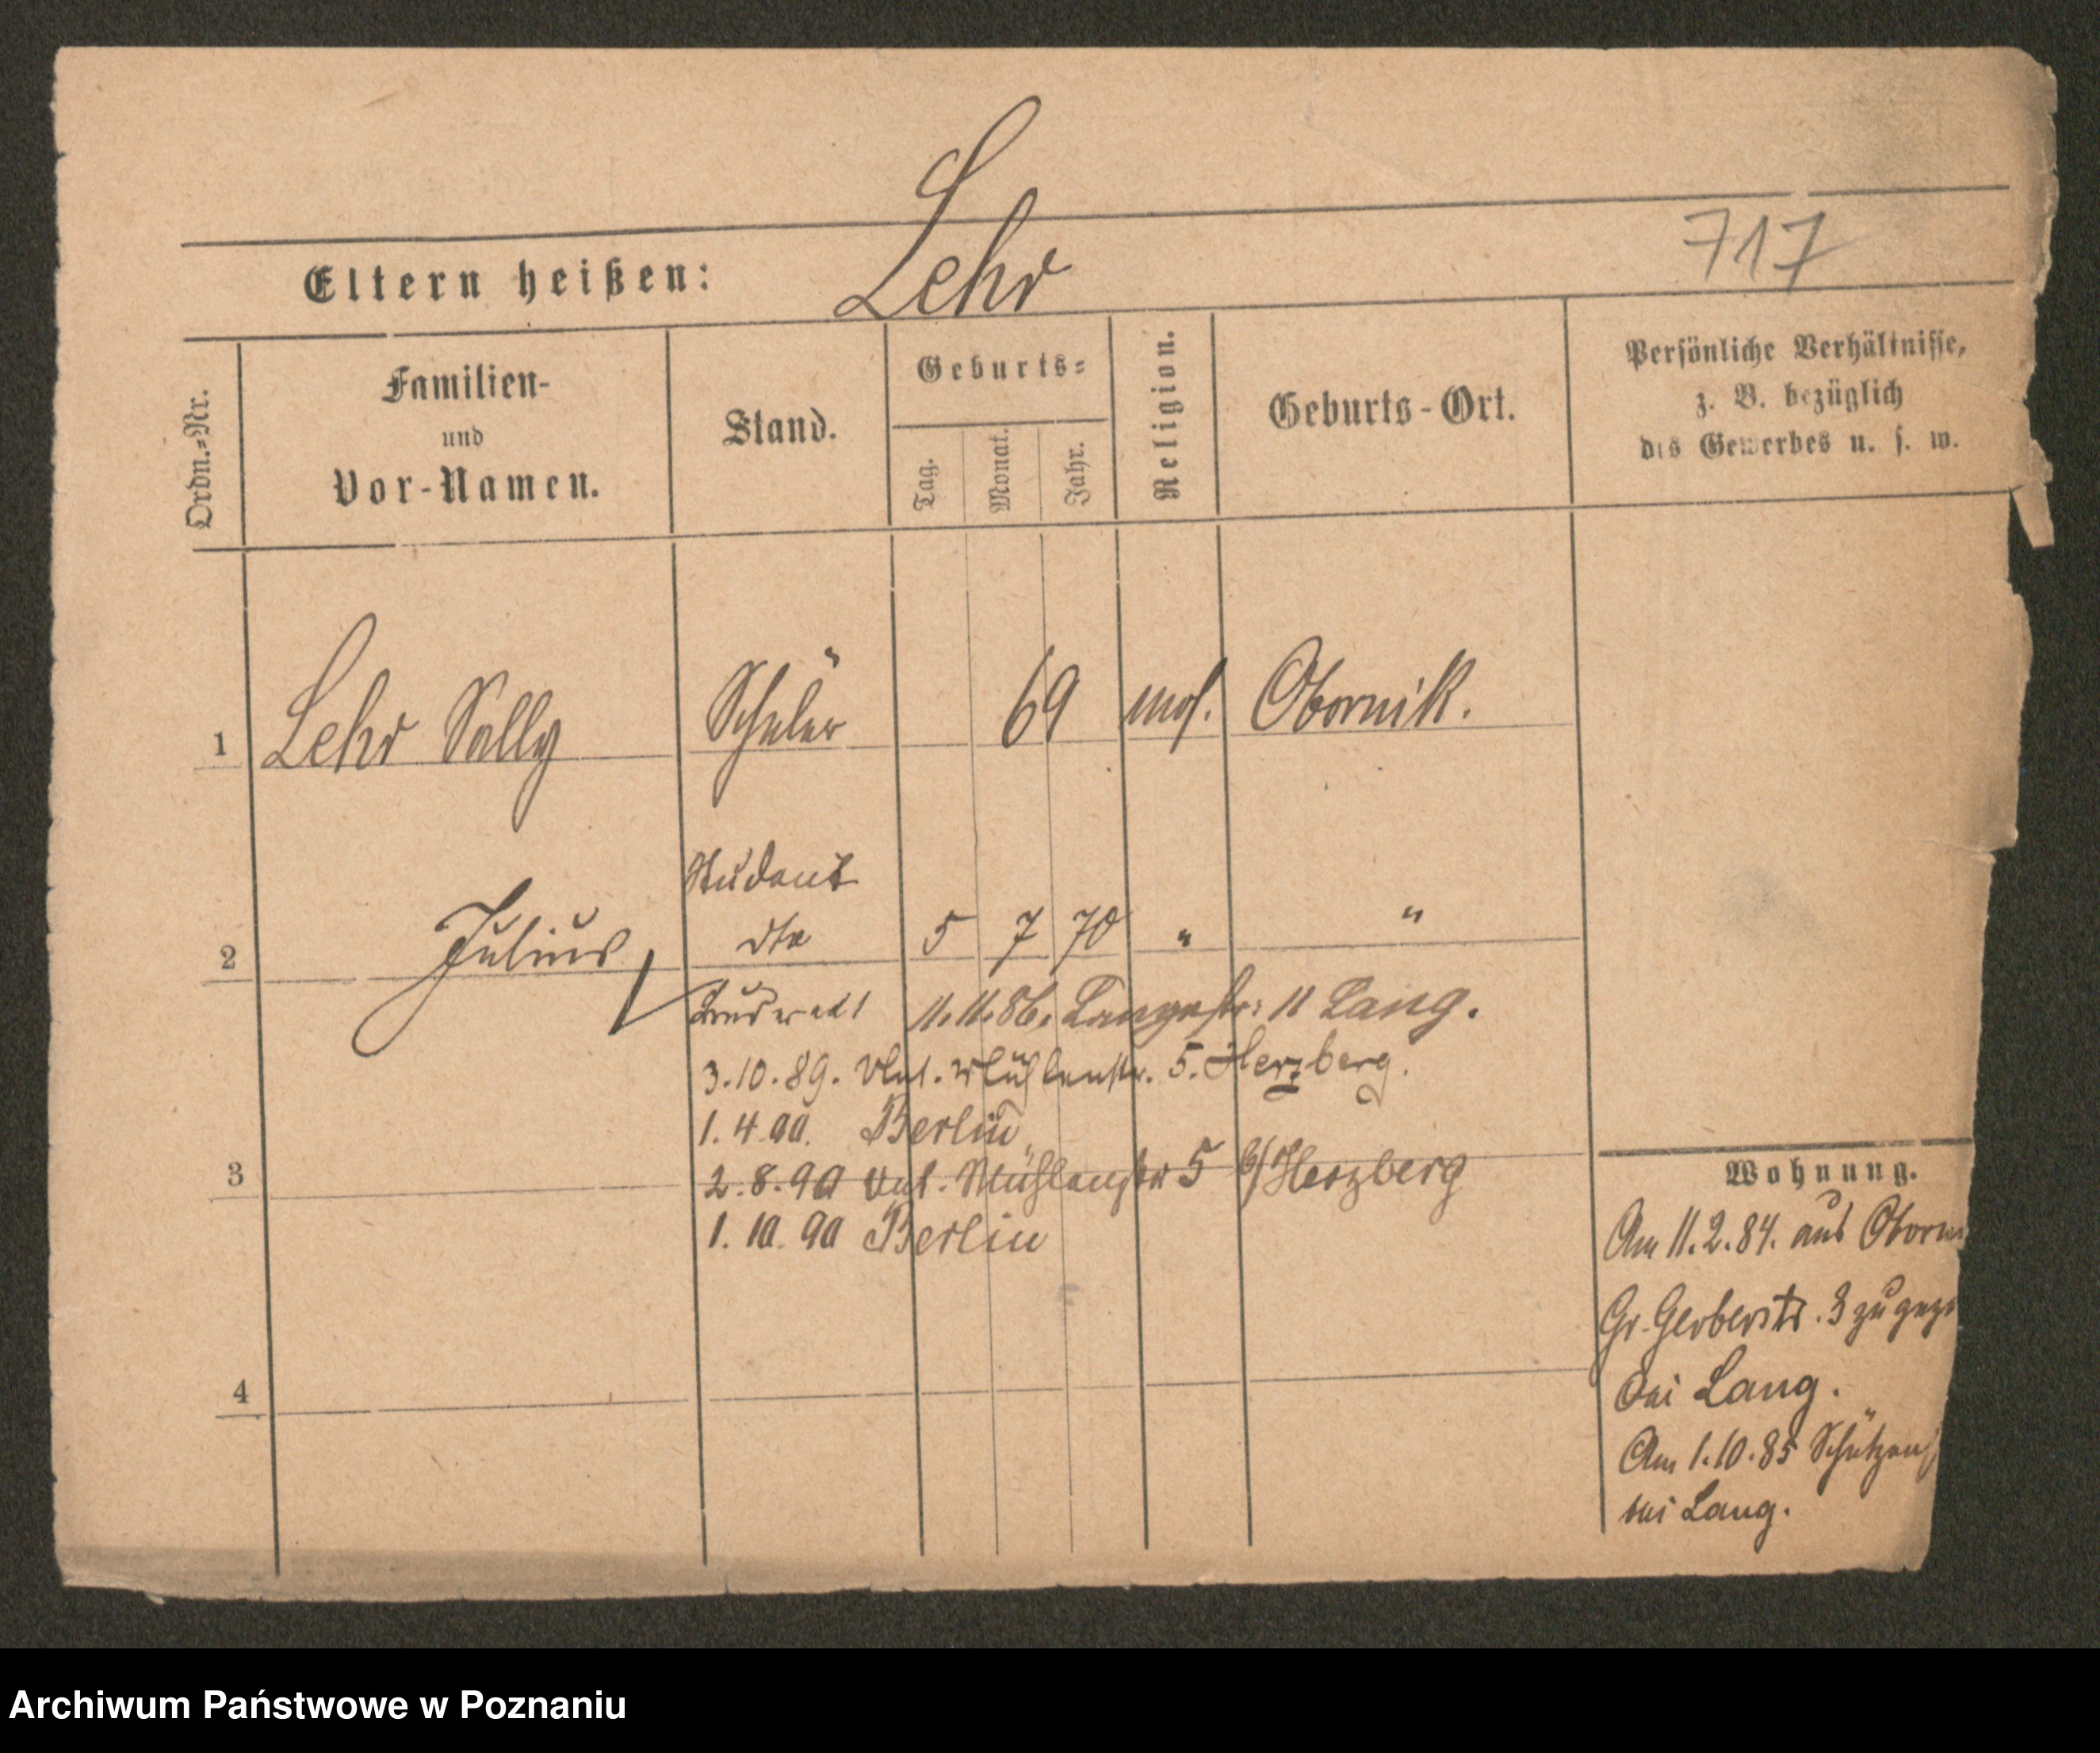 Lehr
717
Eltern heißen:
Ordn.=Nr.
Familien-
und
Vor-Namen.
Stand.
Geburts=
Tag.
Monat.
Jahr.
Religion.
Geburts-Ort.
Persönliche Verhältnisse,
z. B. bezüglich
des Gewerbes u. s. w.
1 Lehr Sally Schüler 69 mos. Obornik.
Student
2 Julius dto 5 7 70 " "
11.11.86. Langestr: 11 Lang.
3.10.89. Mühlenstr. 5. Herzberg.
1. 4. 90. Berlin
3
2. 8. 90 Mühlenstr 5 b/ Herzberg
1. 10. 90 Berlin
4
Wohnung.
Am 11. 2. 84. aus Oborni
Gr. Gerberstr. 3 zugezo
bei Lang.
Am 1. 10. 85 Schützen
bei Lang.
Archiwum Państwowe w Poznaniu